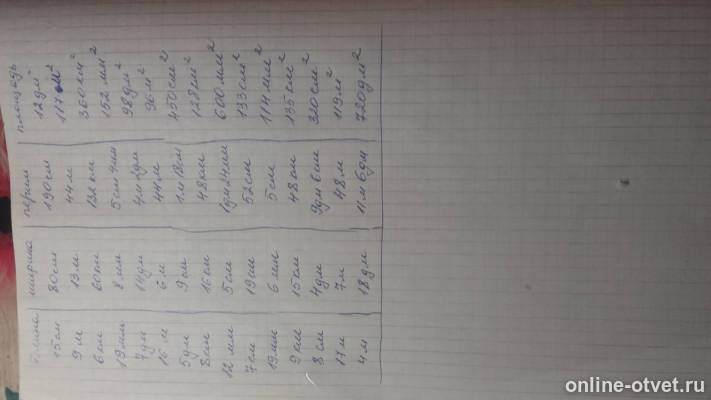 длина ширина перим площадь
15см 80см 190см 12дм²
9м 13м 44м 117м²
6км 60км 132км 360км²
19мм 8мм 5см 4мм 152мм²
7дм 14дм 4м 2дм 98дм²
16м 6м 44м 96м²
5дм 9см 1м 18см 450см²
8км 16км 48км 128км²
12мм 5см 1дм 24мм 600мм²
7см 19см 52см 133см²
19мм 6мм 5см 114мм²
9км 15км 48км 135км²
8см 4дм 9дм 6см 320см²
17м 7м 48м 119м²
4м 18дм 11м 6дм 720дм²
online-otvet.ru